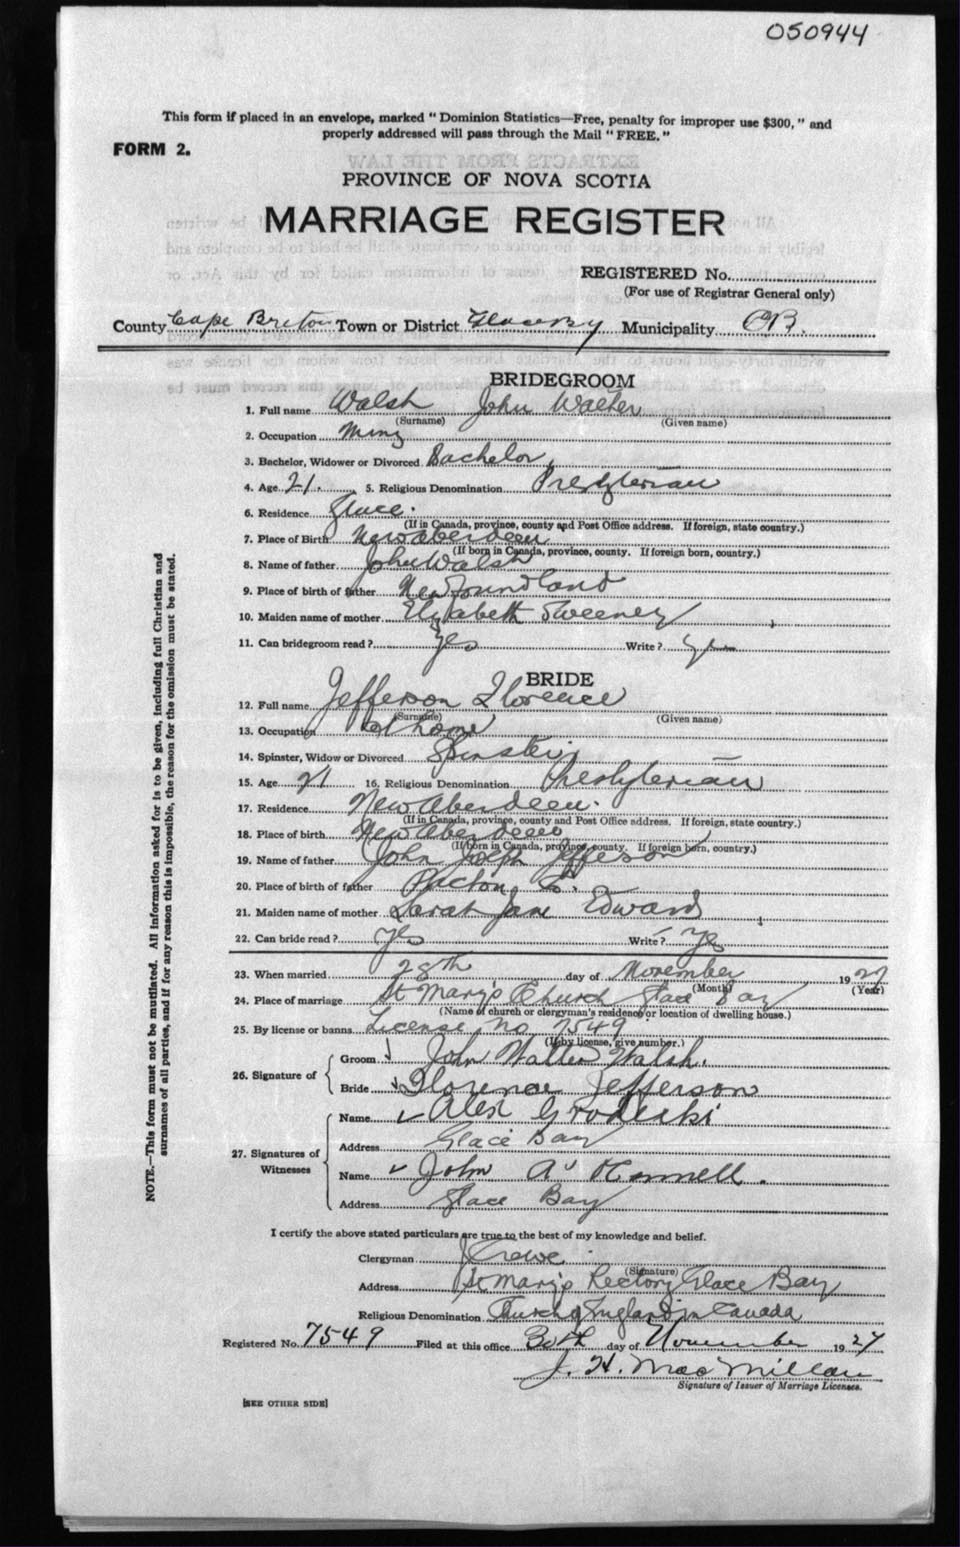 050944
This form if placed in an envelope, marked "Dominion Statistics—Free, penalty for improper use $300," and
properly addressed will pass through the Mail "FREE."
FORM 2.
PROVINCE OF NOVA SCOTIA
MARRIAGE REGISTER
REGISTERED No.
(For use of Registrar General only)
County Cape Breton Town or District Glace Bay Municipality CB.
BRIDEGROOM
1. Full name Walsh John Walter
(Surname) (Given name)
2. Occupation
3. Bachelor, Widower or Divorced Bachelor
4. Age 21. 5. Religious Denomination Presbyterian
6. Residence Glace.
(If in Canada, province, county and Post Office address. If foreign, state country.)
7. Place of Birth New Aberdeen
(If born in Canada, province, county. If foreign born, country.)
8. Name of father John Walsh
9. Place of birth of father Newfoundland
10. Maiden name of mother Elizabeth Sweeney
11. Can bridegroom read? Yes Write? Yes
BRIDE
12. Full name Jefferson Florence
(Surname) (Given name)
13. Occupation at home
14. Spinster, Widow or Divorced Spinster
15. Age 21 16. Religious Denomination Presbyterian
17. Residence New Aberdeen.
(If in Canada, province, county and Post Office address. If foreign, state country.)
18. Place of birth New Aberdeen
(If born in Canada, province, county. If foreign born, country.)
19. Name of father John Joseph Jefferson
20. Place of birth of father
21. Maiden name of mother Sarah Jane Edward
22. Can bride read? Yes Write? Yes
23. When married 28th day of November 1927
(Month) (Year)
24. Place of marriage St Mary's Church Glace Bay
(Name of church or clergyman's residence or location of dwelling house.)
25. By license or banns License no 7549
(If by license, give number.)
26. Signature of { Groom John Walter Walsh.
Bride Florence Jefferson
27. Signatures of Witnesses { Name Alex Grodeski
Address Glace Bay
Name John A O'Connell.
Address Glace Bay
I certify the above stated particulars are true to the best of my knowledge and belief.
Clergyman J Crowe
(Signature)
Address St Mary's Rectory Glace Bay
Religious Denomination Church of England in Canada
Registered No. 7549 Filed at this office 30th day of November 1927
J. H. MacMillan
Signature of Issuer of Marriage Licenses.
[SEE OTHER SIDE]
NOTE.—This form must not be mutilated. All information asked for is to be given, including full Christian and
surnames of all parties, and if for any reason this is impossible, the reason for the omission must be stated.